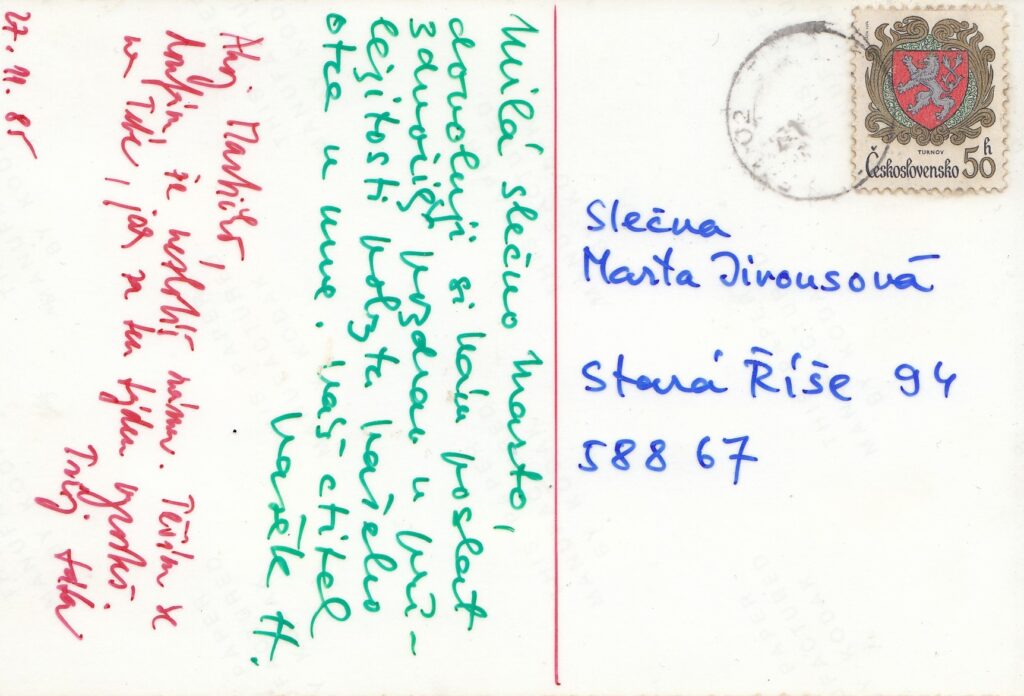 Milá slečno Marto,
dovoluji si Vám poslat
zdvořilý pozdrav u pří-
ležitosti pobytu Vašeho
otce u mne. Váš ctitel
Vašek H.
Ahoj Martičko,
doufám že nezlobíš mámu. Těším se
na Tebe, jak za ten týden vyrosteš.
Tvůj táta
27. 11. 85
TURNOV
Československo 50 h
Slečna
Marta Jirousová
Stará Říše 94
588 67